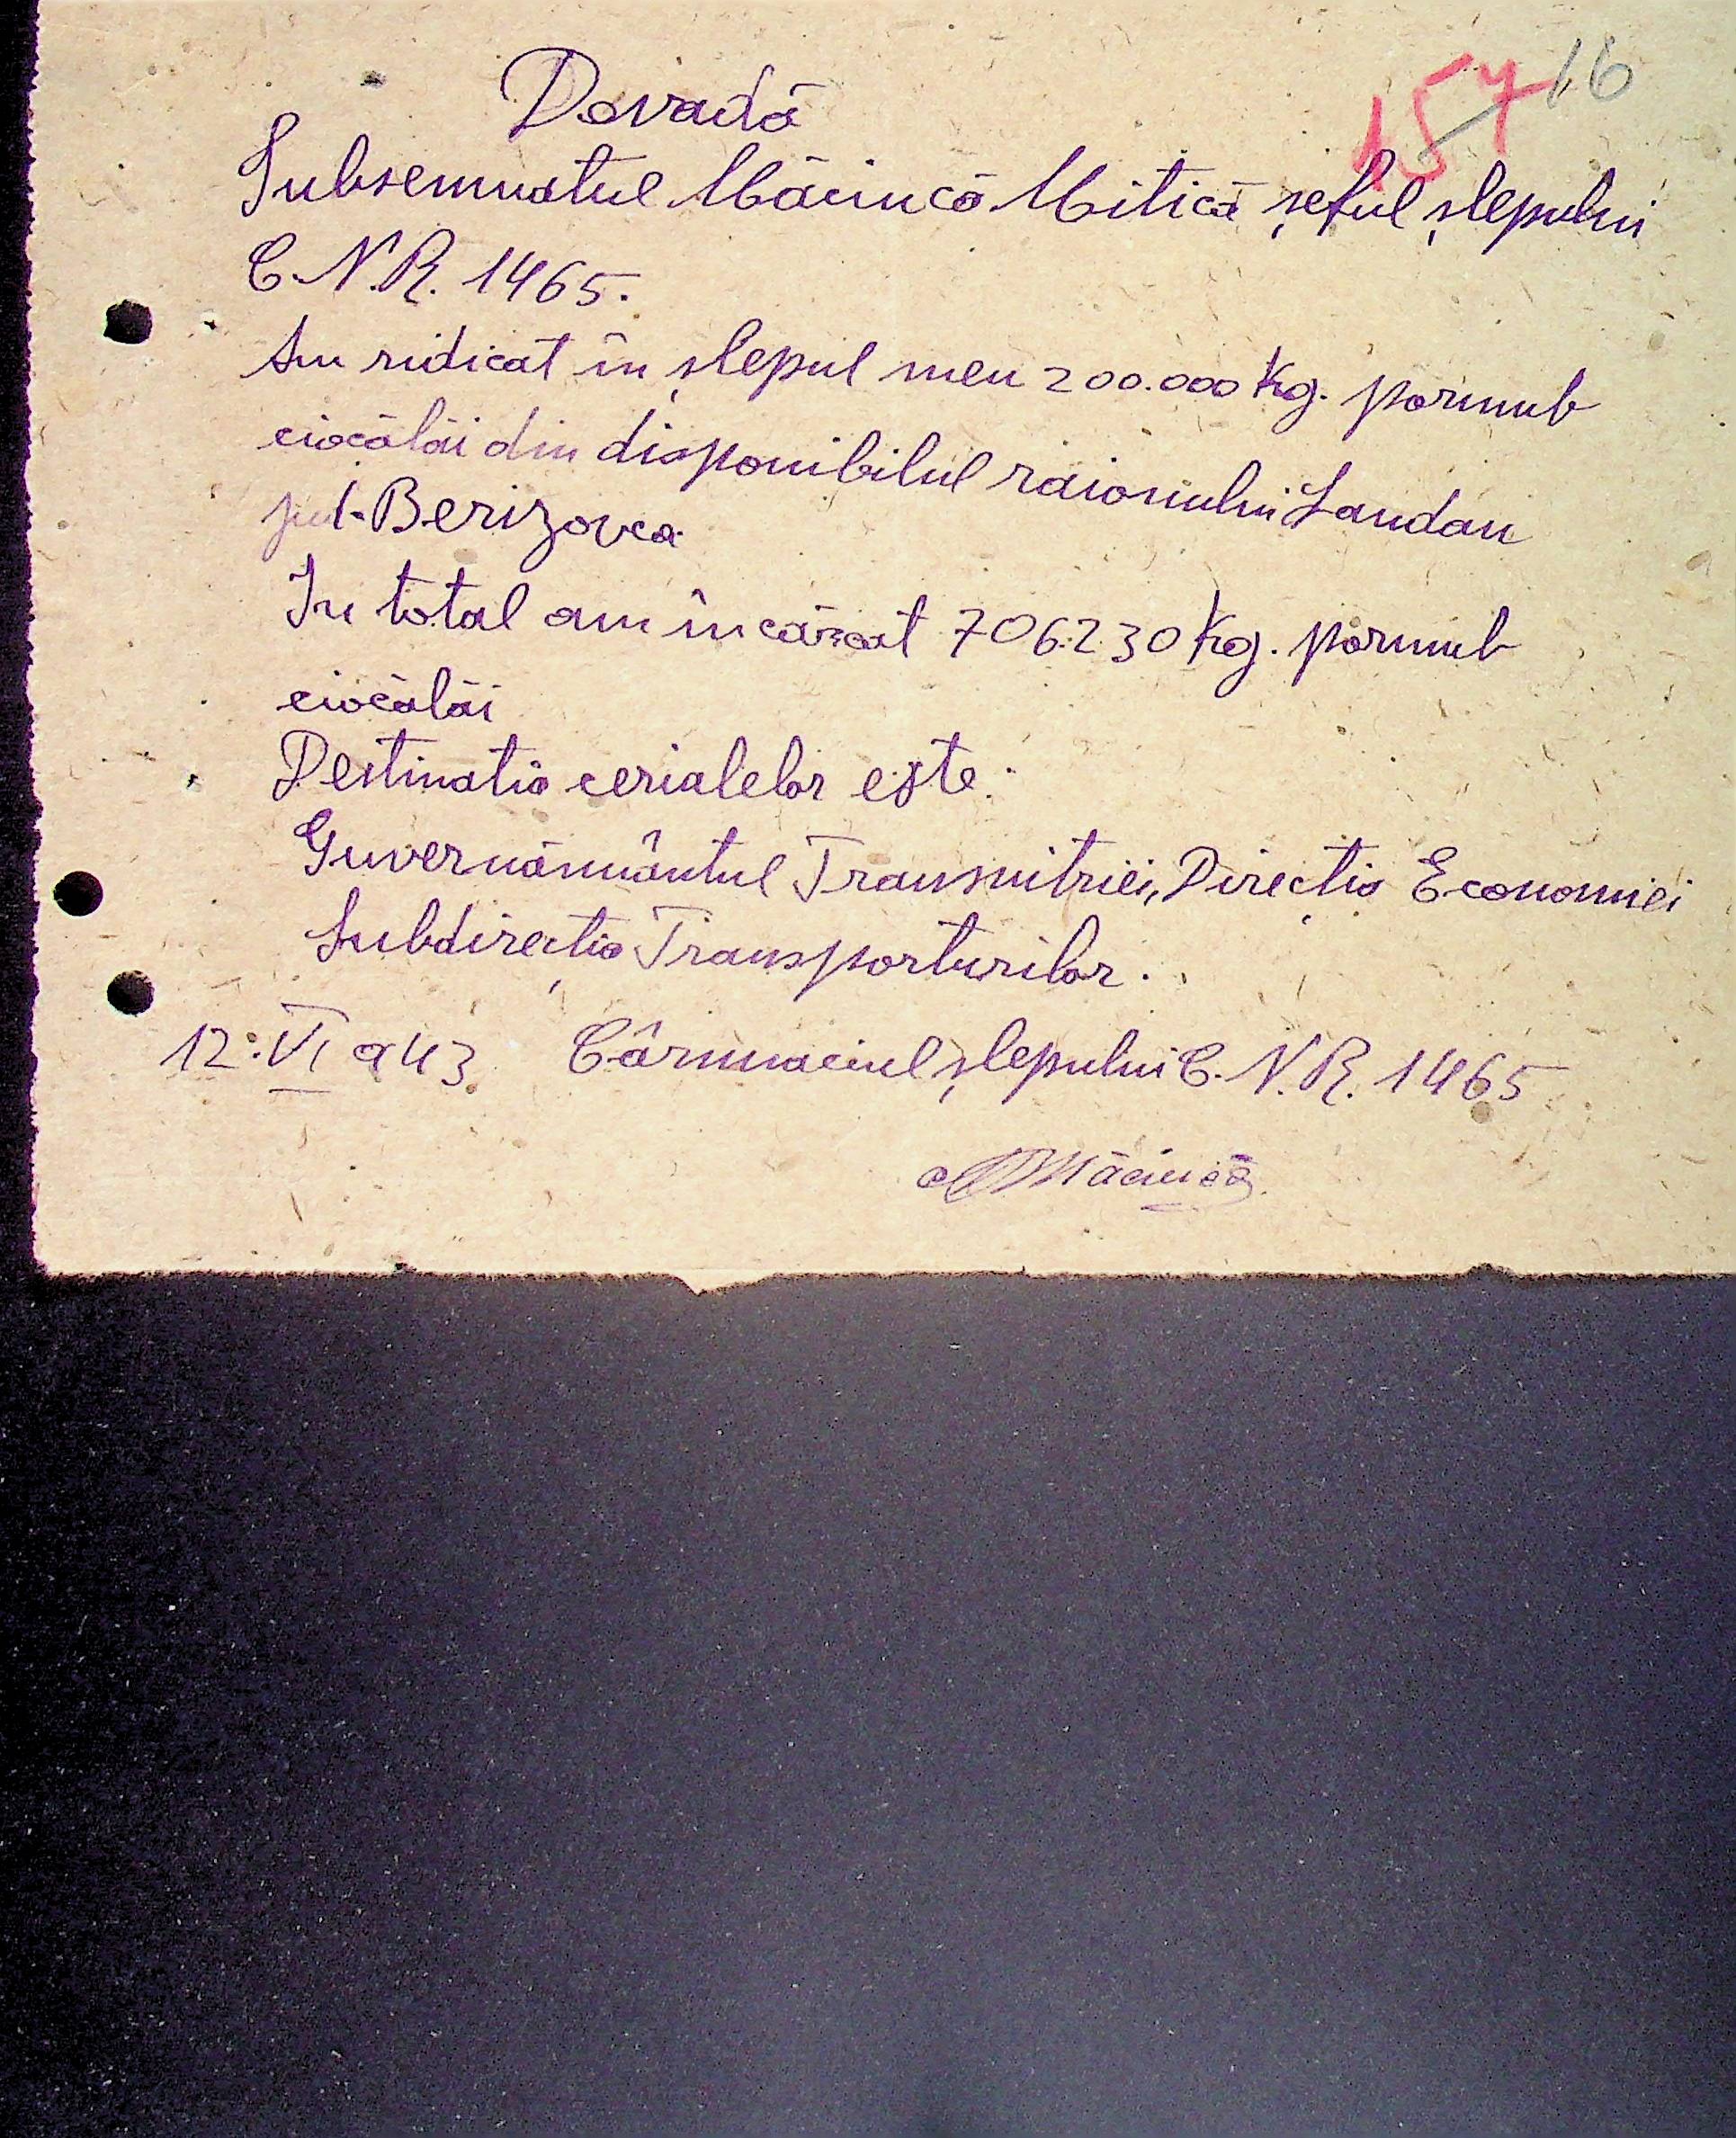 157 16
Dovadă
Subsemnatul Măcincă Mitică șeful șlepului
C.N.R. 1465.
Am ridicat în șlepul meu 200.000 Kg. porumb
ciocălăi din disponibilul raionului Landau
jud. Berizovca
In total am încărcat 706.230 Kg. porumb
ciocălăi
Destinatia cerialelor este:
Guvernământul Transnitriei, Direcția Economiei
Subdirecția Transporturilor.
12.VI 943 Cârmaciul șlepului C.N.R. 1465
Măcincă